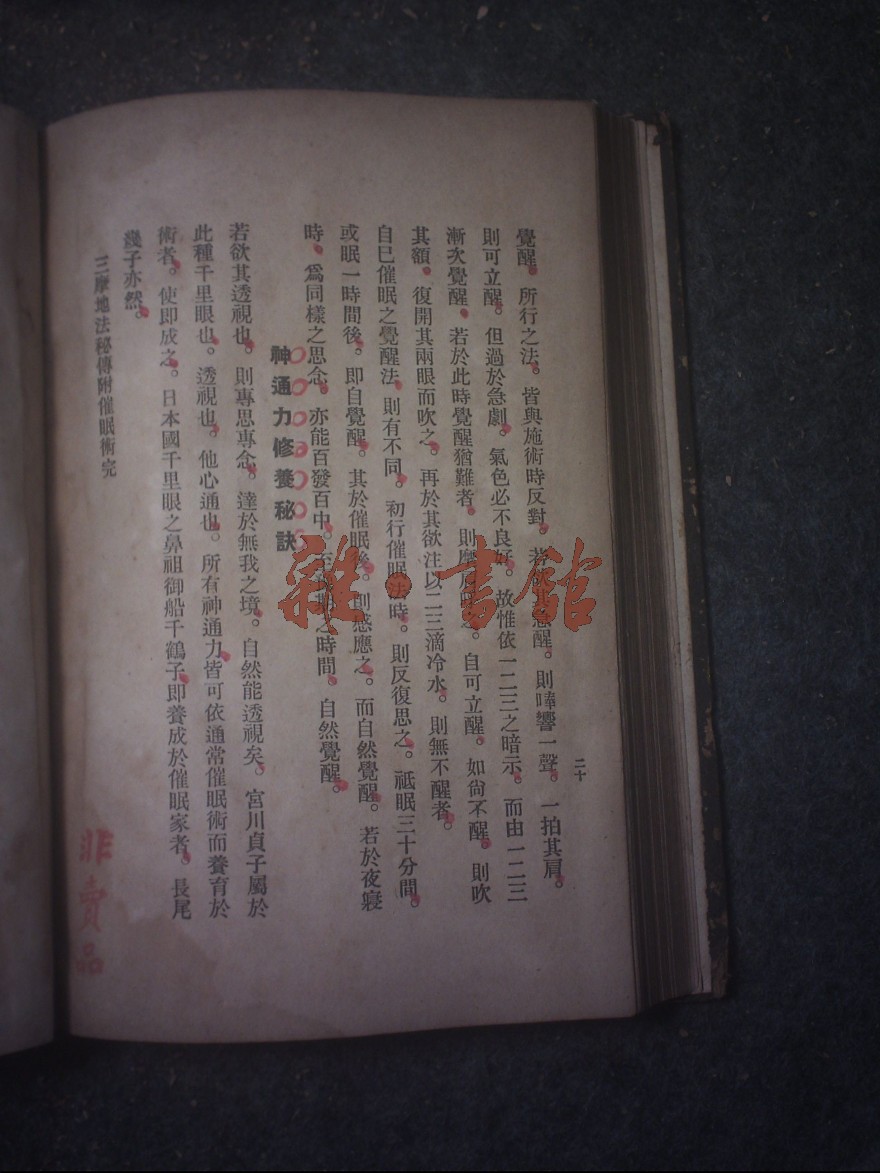 二十
覺醒。所行之法。皆與施術時反對。若欲其急醒。則嘩響一聲。一拍其肩。
則可立醒。但過於急劇。氣色必不良好。故惟依一二三之暗示。而由一二三
漸次覺醒。若於此時覺醒猶難者。則摩 之。自可立醒。如尚不醒。則吹
其額。復開其兩眼而吹之。再於其欲注以二三滴冷水。則無不醒者。
自己催眠之覺醒法。則有不同。初行催眠法時。則反復思之。祗眠三十分間。
或眠一時間後。即自覺醒。其於催眠後。則感應之。而自然覺醒。若於夜寢
時。爲同樣之思念。亦能百發百中。至 之時間。自然覺醒。
神通力修養秘訣
若欲其透視也。則專思專念。達於無我之境。自然能透視矣。宮川貞子屬於
此種千里眼也。透視也。他心通也。所有神通力。皆可依通常催眠術而養育於
術者。使即成之。日本國千里眼之鼻祖御船千鶴子。即養成於催眠家者。長尾
幾子亦然。
三摩地法秘傳附催眠術完
非賣品
雜·書館